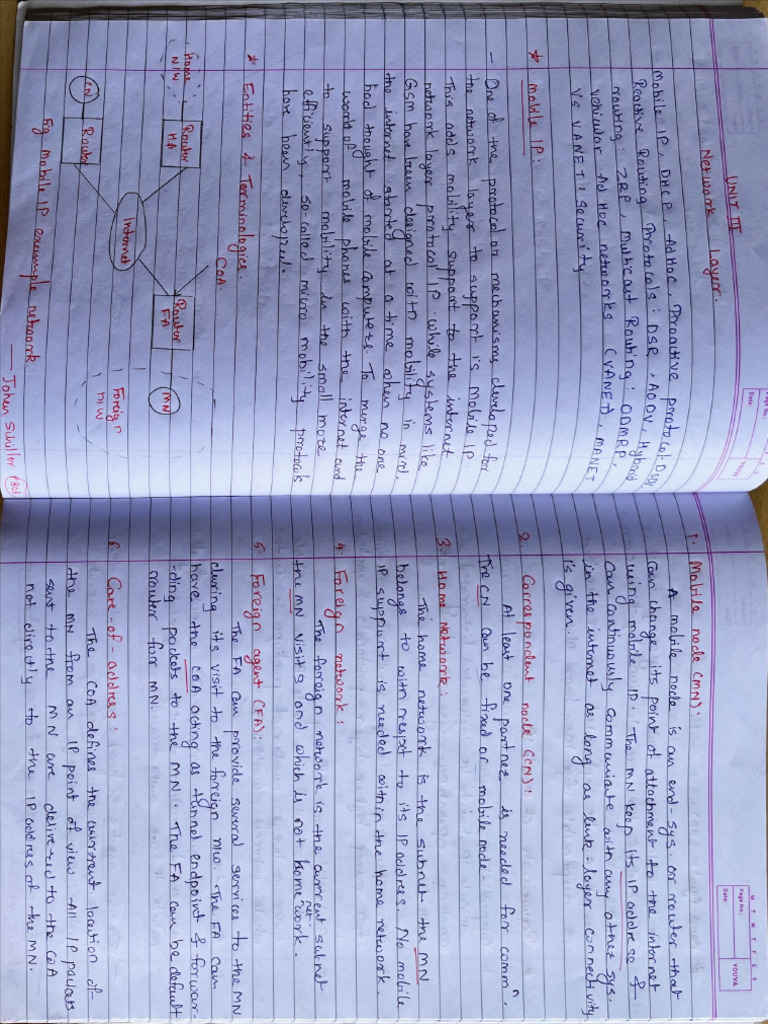 UNIT III
Network Layer.
Mobile IP, DHCP, AdHoc, Proactive protocol-DSDV
Reactive Routing Protocols: DSR, AODV, Hybrid
routing: ZRP, Multicast Routing: ODMRP,
Vehicular Ad Hoc networks (VANET), MANET
Vs VANET, Security.
* Mobile IP:
- One of the protocol or mechanisms developed for
the network layer to support is Mobile IP.
This adds mobility support to the internet
network layer protocol IP. While systems like
GSM have been designed with mobility in mind,
the internet started at a time when no one
had thought of mobile computers. To merge the
world of mobile phones with the internet and
to support mobility in the small more
efficiently, so-called micro mobility protocols
have been developed.
* Entities & Terminologies.
COA
Home
N/W
Router
HA
Router
FA
MN
Internet
Foreign
N/W
CN
Router
Fig mobile IP example network
— Johen Schiller 303
Page No.:
Date:
YOUVA
M T W T F S S
Page No.:
Date:
YOUVA
1. Mobile node (MN):
A mobile node is an end sys. or router that
can change its point of attachment to the internet
using mobile IP. The MN keep its IP address &
can continuously communicate with any other sys.
in the internet as long as link-layer connectivity
is given.
2. Correspondent node (CN):
At least one partner is needed for commⁿ.
The CN can be fixed or mobile node.
3. Home Network:
The home network is the subnet the MN
belongs to with respt to its IP address. No mobile
IP support is needed within the home network.
4. Foreign network:
The foreign network is the current subnet
the MN visits and which is not home net work.
5. Foreign agent (FA):
The FA can provide several services to the MN
during its visit to the foreign n/w. The FA can
have the COA acting as tunnel endpoint & forwar-
-ding packets to the MN. The FA can be default
router for MN.
6. Care-of-address:
The COA defines the current location of
the MN from an IP point of view. All IP packets
sent to the MN are delivered to the COA
not directly to the IP address of the MN.